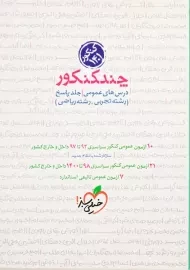 کنکور ۱۴۰۱
چند کنکور
درس‌های عمومی | جلد پاسخ
(رشته تجربی، رشته ریاضی)
۱۰ آزمون عمومی کنکور سراسری ۹۳ تا ۹۷ داخل و خارج کشور
۲۱ آزمون عمومی کنکور سراسری ۹۸ تا ۱۴۰۰ داخل و خارج کشور
۷ آزمون عمومی تألیفی استاندارد
خیلی سبز